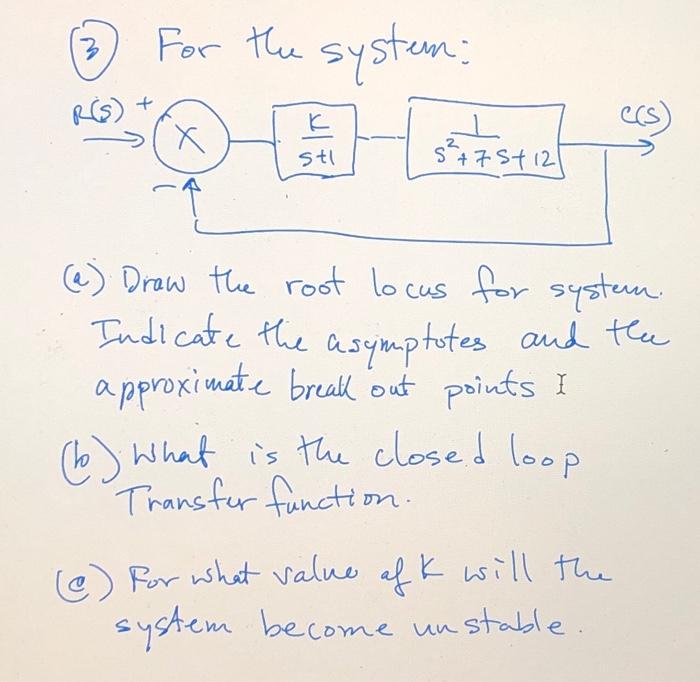 3 For the system:
R(s) + C(s)
X K/s+1 1/s²+7s+12
−
(a) Draw the root locus for system.
Indicate the asymptotes and the
approximate break out points I
(b) What is the closed loop
Transfer function.
(c) For what value of K will the
system become unstable.